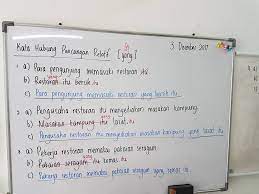 Kata Hubung Pancangan Relatif [yang] 3 Disember 2017
a) Para pengunjung memasuki restoran itu.
b) Restoran itu bersih.
c) Para pengunjung memasuki restoran yang bersih itu.
a) Pengusaha restoran itu menyediakan masakan kampung.
b) Masakan kampung itu lazat.
c) Pengusaha restoran itu menyediakan masakan kampung yang lazat
a) Pekerja restoran memakai pakaian seragam.
b) Pakaian seragam itu kemas.
c) Pekerja restoran memakai pakaian seragam yang kemas